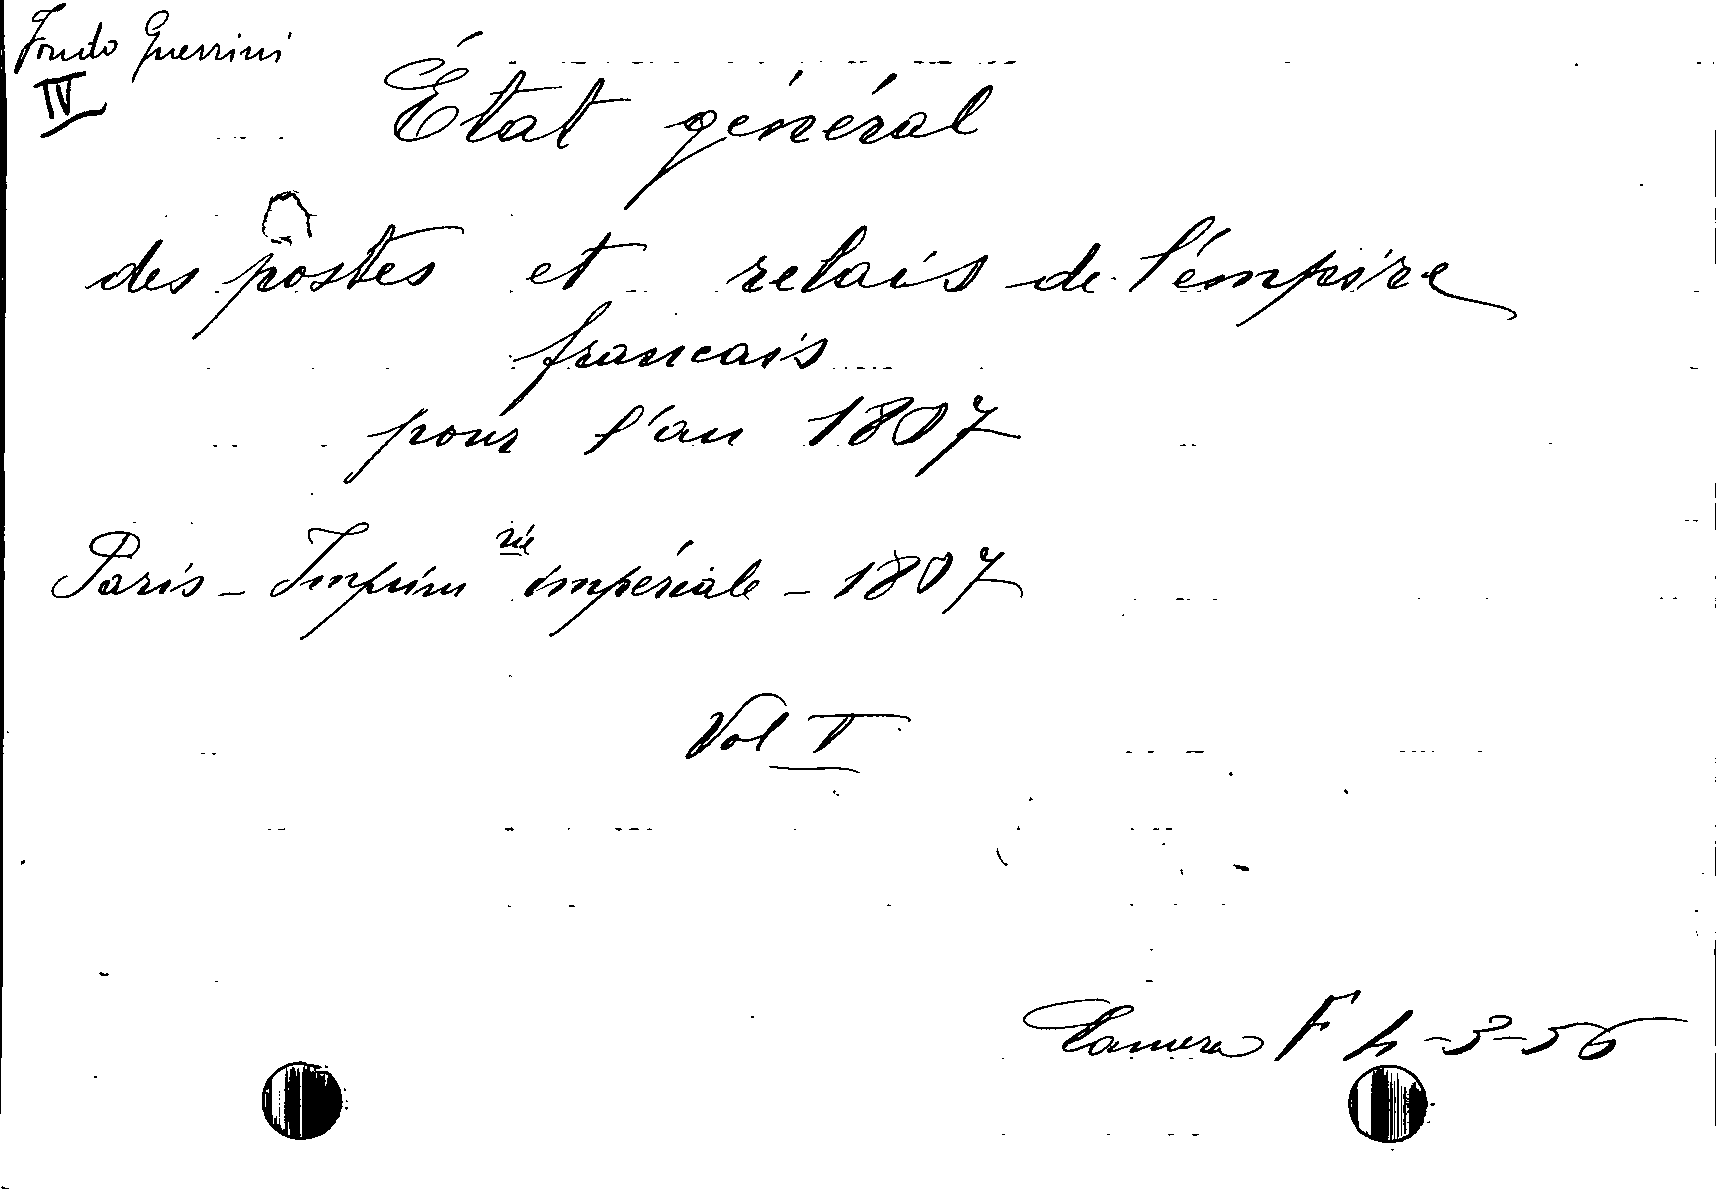 Fondo Guerrini
IV
État général
des pôstes et relais de l'émpire
francais
pour l'an 1807
Paris - Imprim rie impériale - 1807
Vol I
Camera F 4-3-56